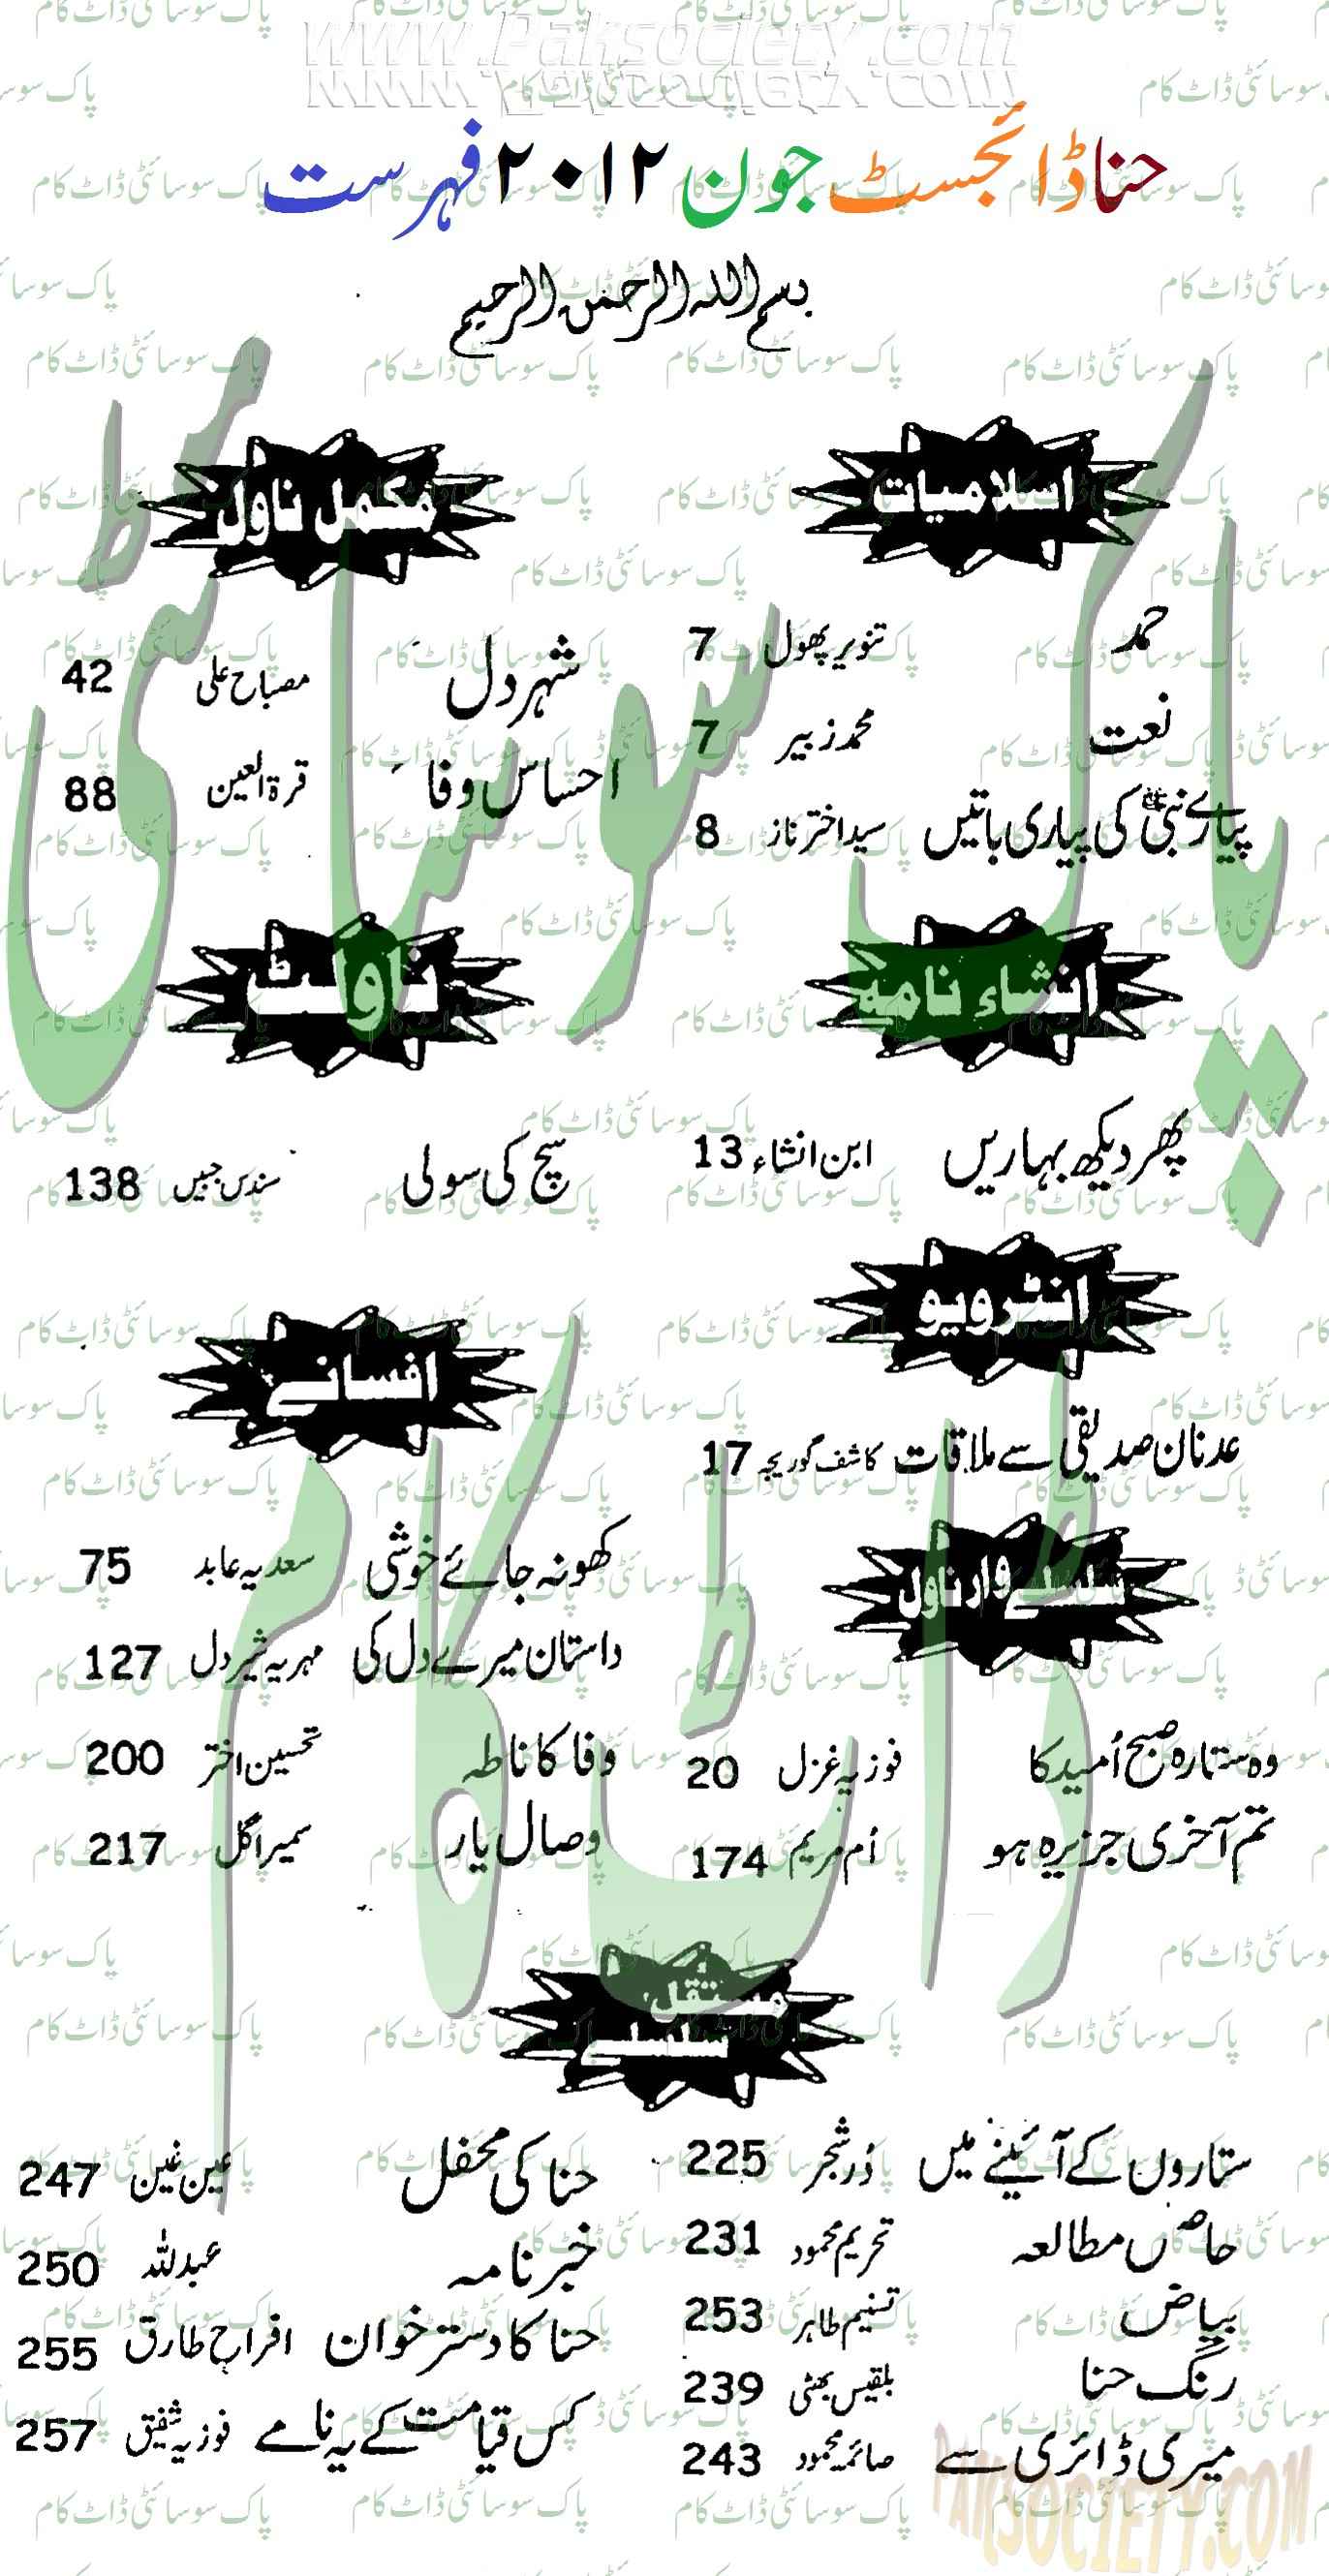 www.Paksociety.com
حنا ڈائجسٹ جون ۲۰۱۲ فہرست
بسم اللہ الرحمٰن الرحیم
اسلامیات
حمد تنویر پھول 7
نعت محمد زبیر 7
پیارے نبیؐ کی پیاری باتیں سید اختر ناز 8
انشاء نامہ
پھر دیکھ بہاریں ابن انشاء 13
انٹرویو
عدنان صدیقی سے ملاقات کاشف گوریجہ 17
سلسلے وار ناول
وہ ستارہ صبح اُمید کا فوزیہ غزل 20
تم آخری جزیرہ ہو اُم مریم 174
مکمل ناول
شہر دل مصباح علی 42
احساس وفا قرۃ العین 88
ناولٹ
سچ کی سولی سندس جبیں 138
افسانے
کھو نہ جائے خوشی سعدیہ عابد 75
داستان میرے دل کی مہریہ شیر دل 127
وفا کا ناطہ تحسین اختر 200
وصال یار سمیرا گل 217
مستقل سلسلے
ستاروں کے آئینے میں دُر شجر 225
حاصل مطالعہ تحریم محمود 231
بیاض تسنیم طاہر 253
رنگ حنا بلقیس بھٹی 239
میری ڈائری سے صائمہ محمود 243
حنا کی محفل عین غین 247
خبر نامہ عبداللہ 250
حنا کا دستر خوان افراح طارق 255
کس قیامت کے یہ نامے فوزیہ شفیق 257
پاک سوسائٹی ڈاٹ کام
PAKSOCIETY.COM